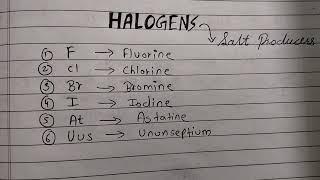 HALOGENS → Salt Producers
① F → Fluorine
② Cl → Chlorine
③ Br → Bromine
④ I → Iodine
⑤ At → Astatine
⑥ Uus → Ununseptium